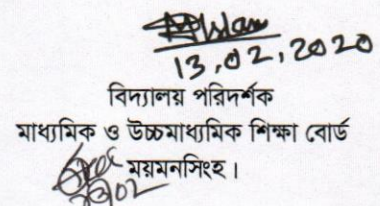 13.02.2020
বিদ্যালয় পরিদর্শক
মাধ্যমিক ও উচ্চমাধ্যমিক শিক্ষা বোর্ড
ময়মনসিংহ।